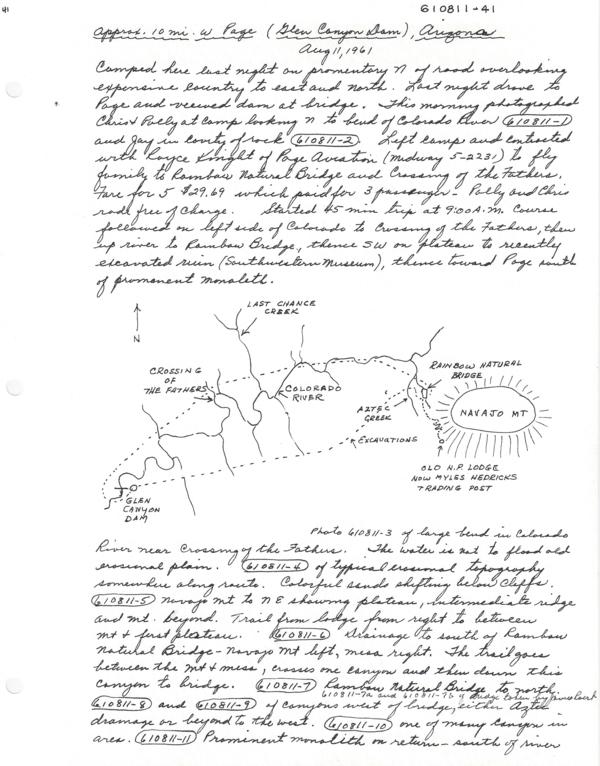 41
610811-41
Approx. 10 mi. W Page (Glen Canyon Dam), Arizona
Aug 11, 1961
Camped here last night on promontory N of road overlooking
expensive country to east and north. Last night drove to
Page and viewed dam at bridge. This morning photographed
Chris & Polly at camp looking N to bend of Colorado River (610811-1)
and Jay in cavity of rock (610811-2). Left camp and contracted
with Royce Knight of Page Aviation (Midway 5-2231) to fly
family to Rainbow Natural Bridge and Crossing of the Fathers.
Fare for 5 $29.69 which paid for 3 passengers - Polly and Chris
rode free of charge. Started 45 min trip at 9:00 A.M. Course
followed on left side of Colorado to Crossing of the Fathers, then
up river to Rainbow Bridge, thence SW on plateau to recently
excavated ruin (Southwestern Museum), thence toward Page south
of prominent monolith.
N
LAST CHANCE
CREEK
CROSSING
OF
THE FATHERS
COLORADO
RIVER
RAINBOW NATURAL
BRIDGE
AZTEC
CREEK
NAVAJO MT
EXCAVATIONS
OLD N.P. LODGE
NOW MYLES HEDRICKS
TRADING POST
GLEN
CANYON
DAM
Photo 610811-3 of large bend in Colorado
River near Crossing of the Fathers. The water is not to flood old
erosional plain. (610811-4) of typical erosional topography
somewhere along route. Colorful sands shifting below cliffs.
(610811-5) Navajo Mt to NE showing plateau, intermediate ridge
and mt. beyond. Trail from lodge from right to between
mt & first plateau. (610811-6) Drainage to south of Rainbow
Natural Bridge - Navajo Mt left, mesa right. The trail goes
between the Mt & mesa, crosses one canyon and then down this
canyon to bridge. (610811-7) Rainbow Natural Bridge to north.
610811-7a and 610811-7b
(610811-8) and (610811-9) of canyons west of bridge, either Aztec
drainage or beyond to the west. (610811-10) one of many canyon in
area. (610811-11) Prominent monolith on return - south of river